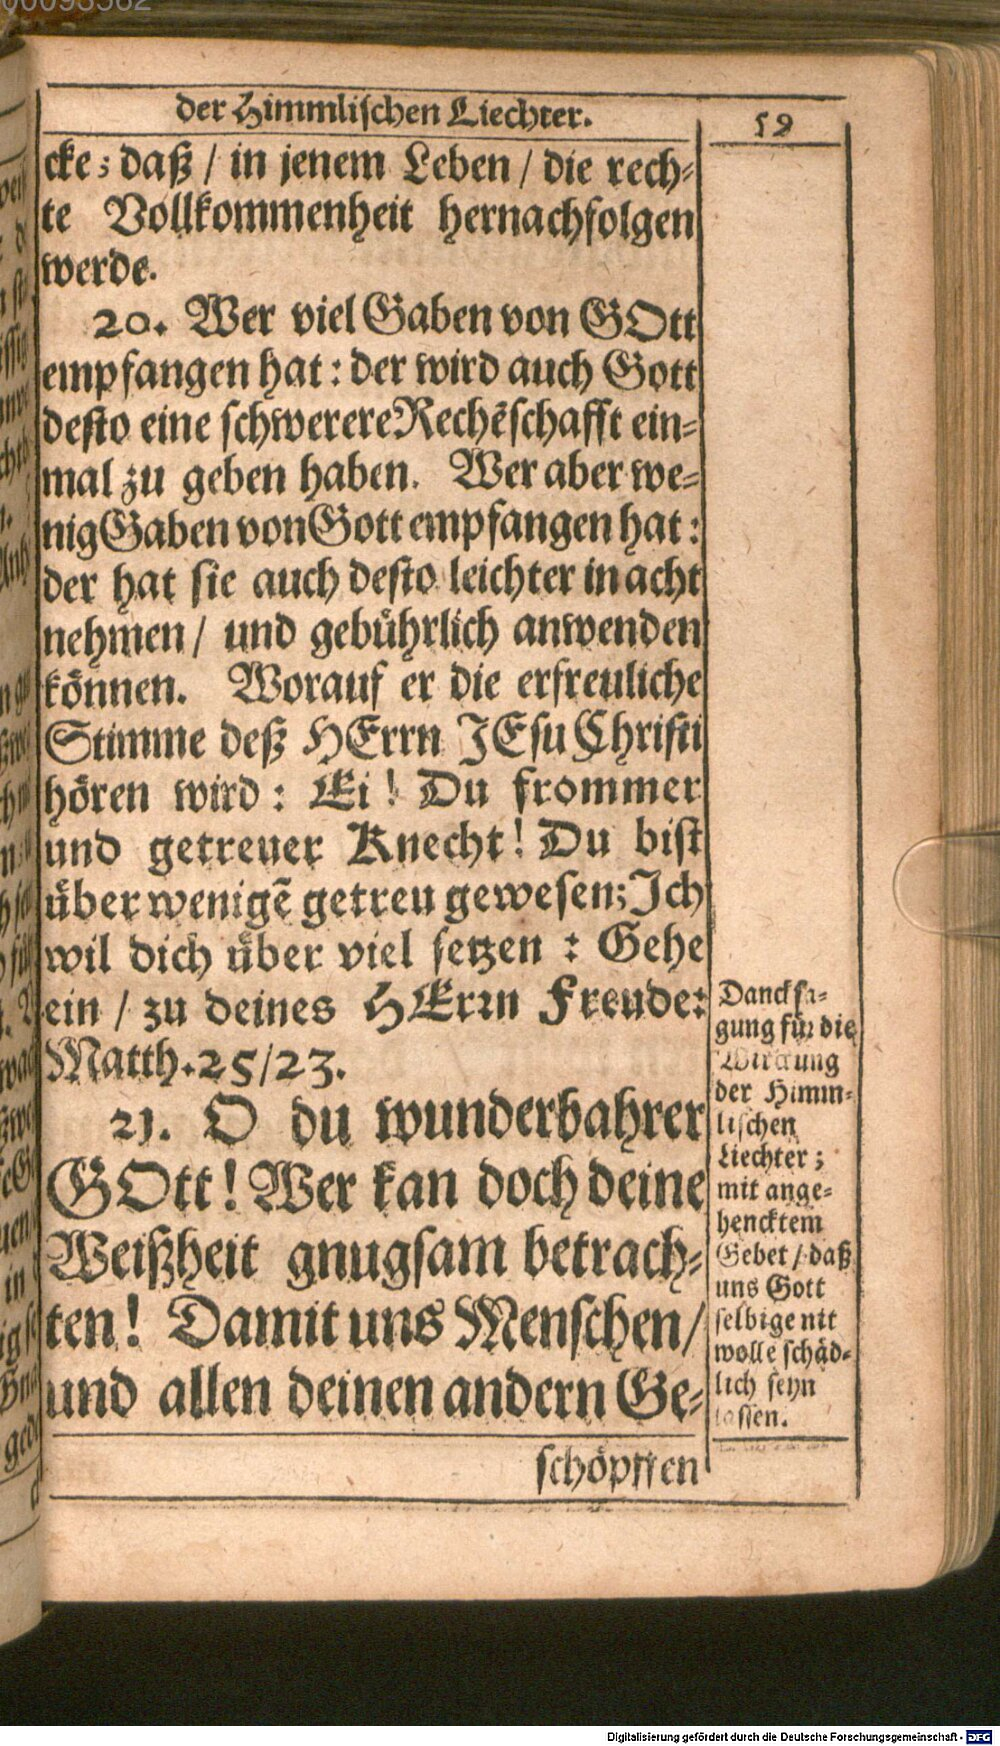 00093562
der Himmlischen Liechter.
59
cke; daß / in jenem Leben / die rech-
te Vollkommenheit hernachfolgen
werde.
20. Wer viel Gaben von GOtt
empfangen hat: der wird auch Gott
desto eine schwerere Rechēschafft ein-
mal zu geben haben. Wer aber we-
nig Gaben von Gott empfangen hat:
der hat sie auch desto leichter in acht
nehmen / und gebührlich anwenden
können. Worauf er die erfreuliche
Stimme deß HErrn JEsu Christi
hören wird: Ei! Du frommer
und getreuer Knecht! Du bist
über wenigē getreu gewesen; Ich
wil dich über viel setzen: Gehe
ein / zu deines HErrn Freude:
Matth. 25/23.
21. O du wunderbahrer
GOtt! Wer kan doch deine
Weißheit gnugsam betrach-
ten! Damit uns Menschen /
und allen deinen andern Ge-
schöpffen
Dancksa-
gung für die
Wirckung
der Himm-
lischen
Liechter;
mit ange-
hencktem
Gebet / daß
uns Gott
selbige nit
wolle schäd-
lich seyn
lassen.
Digitalisierung gefördert durch die Deutsche Forschungsgemeinschaft - DFG